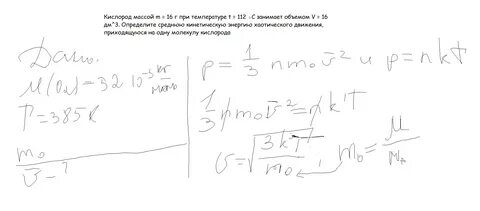 Кислород массой m = 16 г при температуре t = 112 ◦C занимает объемом V = 16
дм^3. Определите среднюю кинетическую энергию хаотического движения,
приходящуюся на одну молекулу кислорода
Дано:
M(O₂)=32 10⁻³ кг/моль
T=385К
m₀
v̄ - ?
p = 1/3 n m₀ v̄² и p = nkT
1/3 n m₀ v̄² = n k T
v = √(3kT/m₀)
m₀ = M/Nₐ